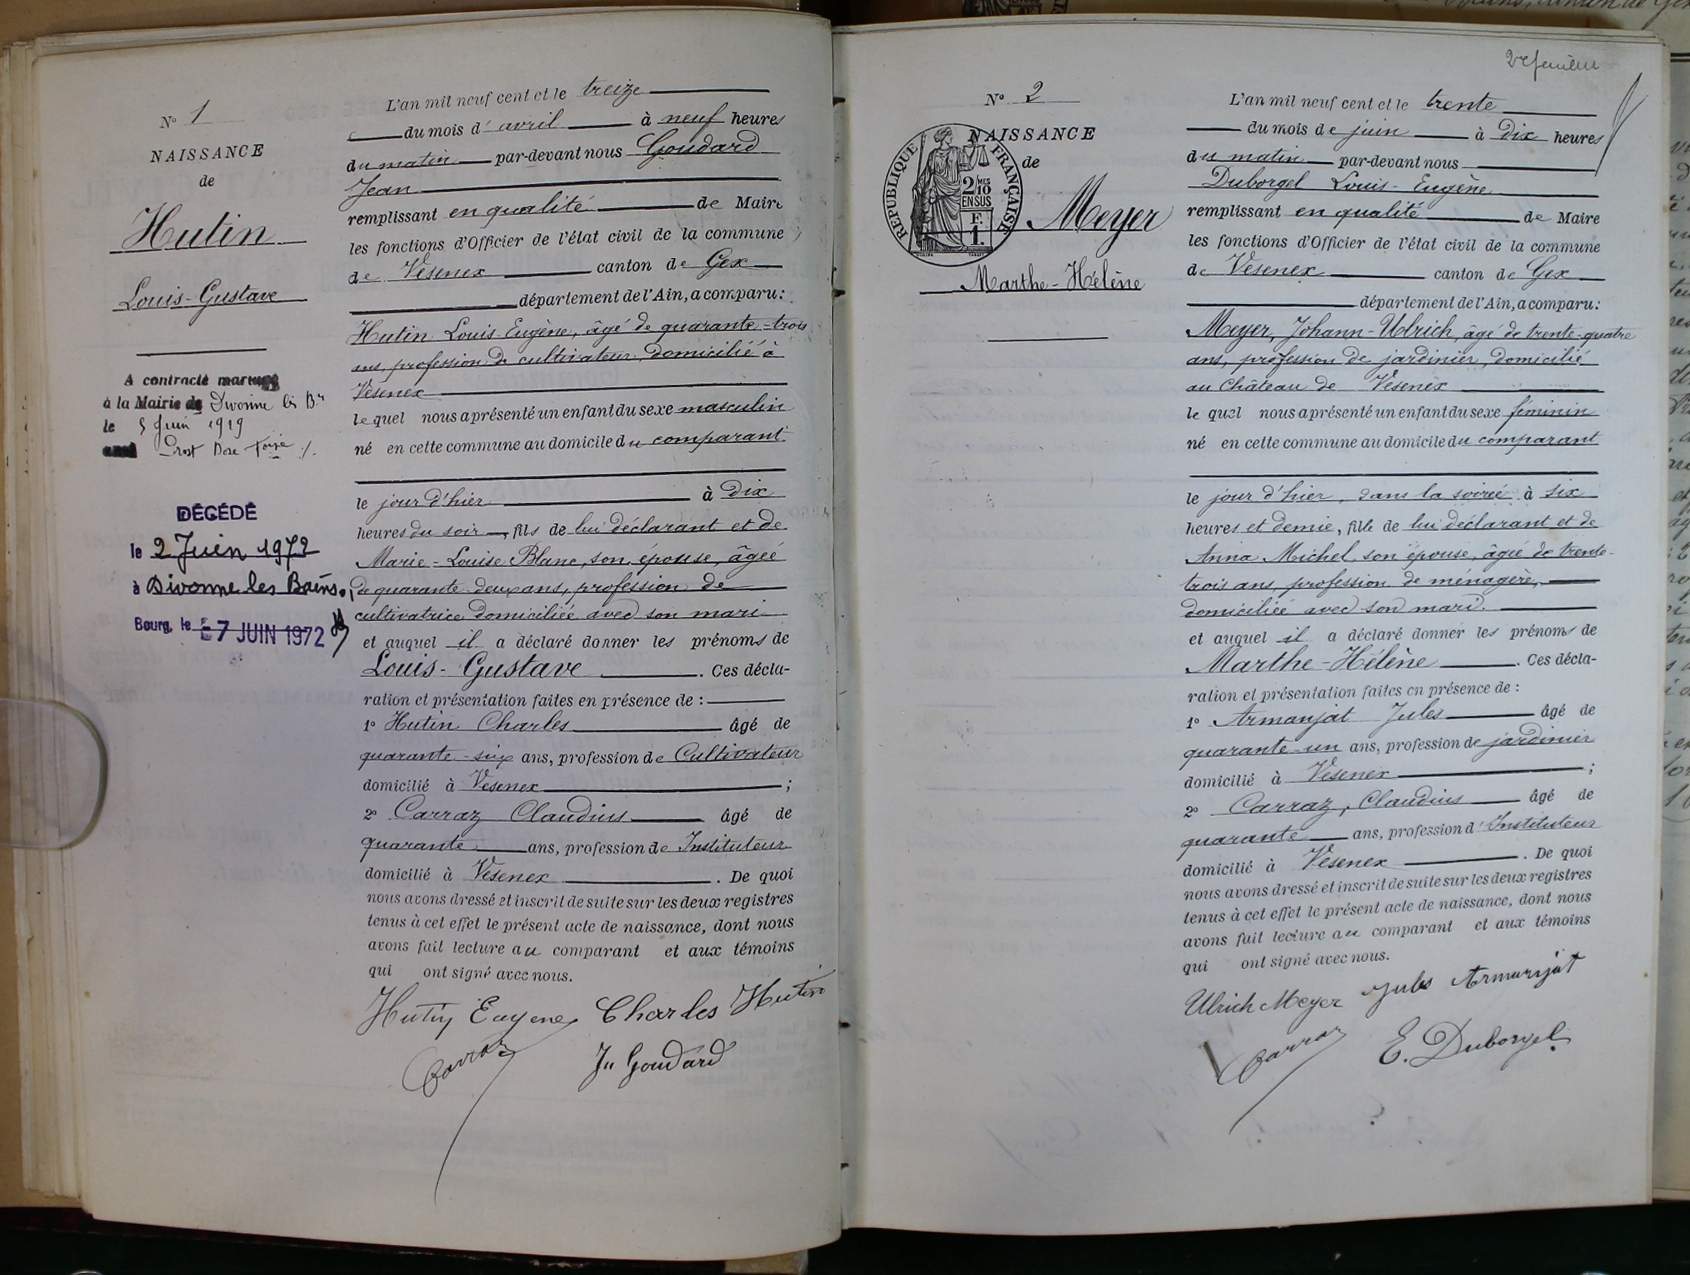 N° 1
NAISSANCE
de
Hutin
Louis-Gustave
A contracté mariage
à la Mairie de Divonne les Bns
le 5 Juin 1919
avec Prost
DÉCÉDÉ
le 2 Juin 1972
à Divonne les Bains
Bourg, le 7 JUIN 1972
L'an mil neuf cent et le treize
du mois d'avril à neuf heures
du matin par-devant nous Goudard
Jean
remplissant en qualité de Maire
les fonctions d'Officier de l'état civil de la commune
de Vésenex canton de Gex
département de l'Ain, a comparu:
Hutin Louis Eugène, âgé de quarante-trois
ans, profession de cultivateur, domicilié à
Vésenex
le quel nous a présenté un enfant du sexe masculin
né en cette commune au domicile du comparant
le jour d'hier à dix
heures du soir, fils de lui déclarant et de
Marie-Louise Blanc, son épouse, âgée
de quarante-deux ans, profession de
cultivatrice domiciliée avec son mari
et auquel il a déclaré donner les prénoms de
Louis-Gustave. Ces décla-
ration et présentation faites en présence de :
1° Hutin Charles âgé de
quarante-six ans, profession de Cultivateur
domicilié à Vésenex ;
2° Carraz Claudius âgé de
quarante ans, profession de Instituteur
domicilié à Vésenex. De quoi
nous avons dressé et inscrit de suite sur les deux registres
tenus à cet effet le présent acte de naissance, dont nous
avons fait lecture au comparant et aux témoins
qui ont signé avec nous.
Hutin Eugène Charles Hutin
Carraz Jn Goudard
2e feuillet
N° 2
NAISSANCE
de
RÉPUBLIQUE FRANÇAISE
2 MES
10
EN SUS
F.
1.
Meyer
Marthe-Hélène
L'an mil neuf cent et le trente
du mois de juin à dix heures
du matin par-devant nous
Duborgel Louis-Eugène
remplissant en qualité de Maire
les fonctions d'Officier de l'état civil de la commune
de Vésenex canton de Gex
département de l'Ain, a comparu:
Meyer, Johann-Ulrich, âgé de trente-quatre
ans, profession de jardinier, domicilié
au Château de Vésenex
le quel nous a présenté un enfant du sexe féminin
né en cette commune au domicile du comparant
le jour d'hier, dans la soirée à six
heures et demie, fille de lui déclarant et de
Anna Michel son épouse, âgée de trente-
trois ans, profession de ménagère,
domiciliée avec son mari.
et auquel il a déclaré donner les prénoms de
Marthe-Hélène. Ces décla-
ration et présentation faites en présence de :
1° Armanjat Jules âgé de
quarante-un ans, profession de jardinier
domicilié à Vésenex ;
2° Carraz, Claudius âgé de
quarante ans, profession d'Instituteur
domicilié à Vésenex. De quoi
nous avons dressé et inscrit de suite sur les deux registres
tenus à cet effet le présent acte de naissance, dont nous
avons fait lecture au comparant et aux témoins
qui ont signé avec nous.
Ulrich Meyer Jules Armanjat
Carraz E. Duborgel